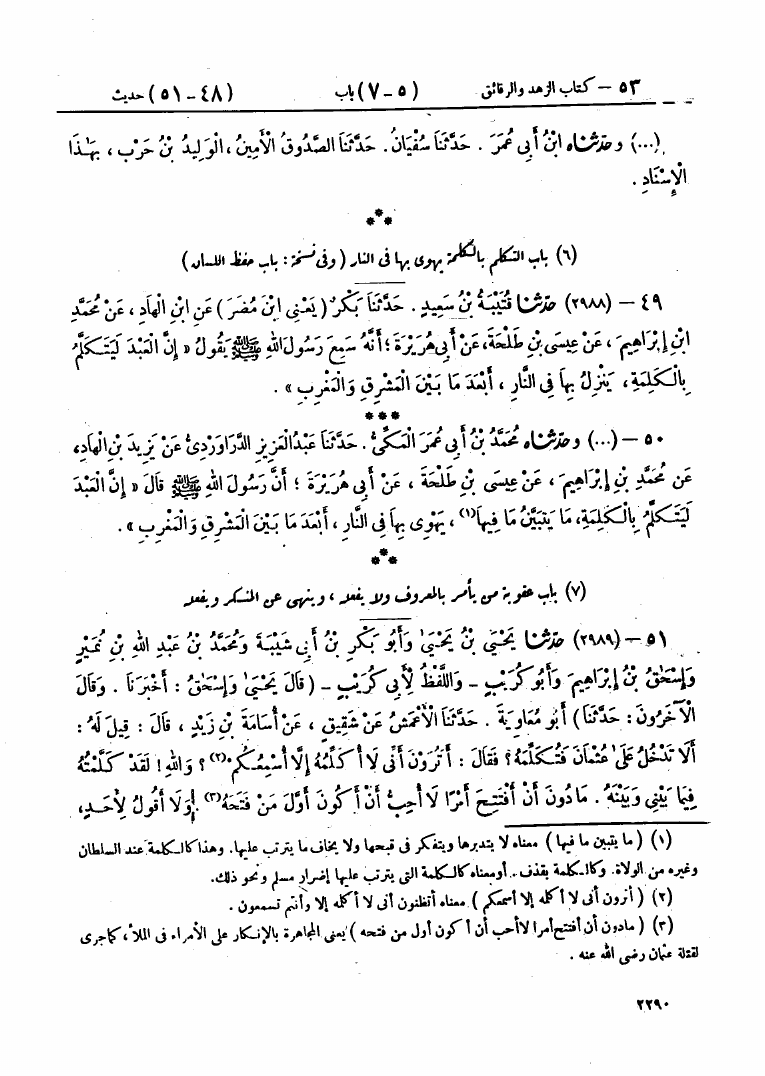 ٥٣ – كتاب الزهد والرقائق (٥-٧) باب (٤٨-٥١) حديث
(...) وحدثناه ابْنُ أَبِي عُمَرَ . حَدَّثَنَا سُفْيَانُ . حَدَّثَنَا الصَّدُوقُ الْأَمِينُ ، الْوَلِيدُ بْنُ حَرْبٍ ، بِهَٰذَا
الْإِسْنَادِ .
***
(٦) باب التكلم بالكلمة يهوى بها فى النار (وفى نسخة : باب حفظ اللسان)
٤٩ – (٢٩٨٨) حدثنا قُتَيْبَةُ بْنُ سَعِيدٍ . حَدَّثَنَا بَكْرٌ (يَعْنِي ابْنَ مُضَرَ) عَنِ ابْنِ الْهَادِ ، عَنْ مُحَمَّدِ
ابْنِ إِبْرَاهِيمَ ، عَنْ عِيسَى بْنِ طَلْحَةَ، عَنْ أَبِي هُرَيْرَةَ ؛ أَنَّهُ سَمِعَ رَسُولَ اللهِ ﷺ يَقُولُ « إِنَّ الْعَبْدَ لَيَتَكَلَّمُ
بِالْكَلِمَةِ ، يَنْزِلُ بِهَا فِي النَّارِ ، أَبْعَدَ مَا بَيْنَ الْمَشْرِقِ وَالْمَغْرِبِ » .
***
٥٠ – (...) وحدثناه مُحَمَّدُ بْنُ أَبِي عُمَرَ الْمَكِّيُّ . حَدَّثَنَا عَبْدُ الْعَزِيزِ الدَّرَاوَرْدِيُّ عَنْ يَزِيدَ بْنِ الْهَادِ،
عَنْ مُحَمَّدِ بْنِ إِبْرَاهِيمَ ، عَنْ عِيسَى بْنِ طَلْحَةَ ، عَنْ أَبِي هُرَيْرَةَ ؛ أَنَّ رَسُولَ اللهِ ﷺ قَالَ « إِنَّ الْعَبْدَ
لَيَتَكَلَّمُ بِالْكَلِمَةِ، مَا يَتَبَيَّنُ مَا فِيهَا(١) ، يَهْوِي بِهَا فِي النَّارِ ، أَبْعَدَ مَا بَيْنَ الْمَشْرِقِ وَالْمَغْرِبِ » .
***
(٧) باب عقوبة من يأمر بالمعروف ولا يفعله ، وينهى عن المنكر ويفعله
٥١ – (٢٩٨٩) حدثنا يَحْيَىٰ بْنُ يَحْيَىٰ وَأَبُو بَكْرِ بْنُ أَبِي شَيْبَةَ وَمُحَمَّدُ بْنُ عَبْدِ اللهِ بْنِ نُمَيْرٍ
وَإِسْحَٰقُ بْنُ إِبْرَاهِيمَ وَأَبُو كُرَيْبٍ – وَاللَّفْظُ لِأَبِي كُرَيْبٍ – (قَالَ يَحْيَىٰ وَإِسْحَٰقُ : أَخْبَرَنَا . وَقَالَ
الْآخَرُونَ : حَدَّثَنَا) أَبُو مُعَاوِيَةَ . حَدَّثَنَا الْأَعْمَشُ عَنْ شَقِيقٍ ، عَنْ أُسَامَةَ بْنِ زَيْدٍ ، قَالَ : قِيلَ لَهُ :
أَلَا تَدْخُلُ عَلَىٰ عُثْمَانَ فَتُكَلِّمَهُ ؟ فَقَالَ : أَتُرَوْنَ أَنِّي لَا أُكَلِّمُهُ إِلَّا أُسْمِعُكُمْ(٢) ؟ وَاللهِ ! لَقَدْ كَلَّمْتُهُ
فِيمَا بَيْنِي وَبَيْنَهُ . مَا دُونَ أَنْ أَفْتَتِحَ أَمْرًا لَا أُحِبُّ أَنْ أَكُونَ أَوَّلَ مَنْ فَتَحَهُ(٣). وَلَا أَقُولُ لِأَحَدٍ،
(١) (ما يتبين ما فيها) معناه لا يتدبرها ويتفكر فى قبحها ولا يخاف ما يترتب عليها. وهذا كالكلمة عند السلطان
وغيره من الولاة. وكالكلمة بقذف. أو معناه كالكلمة التى يترتب عليها إضرار مسلم ونحو ذلك.
(٢) (أترون أنى لا أكلمه إلا أسمعكم) معناه أتظنون أنى لا أكلمه إلا وأنتم تسمعون .
(٣) (مادون أن أفتتح أمرا لا أحب أن أكون أول من فتحه) يعنى المجاهرة بالإنكار على الأمراء فى الملأ، كما جرى
لقتلة عثمان رضى الله عنه .
٢٢٩٠